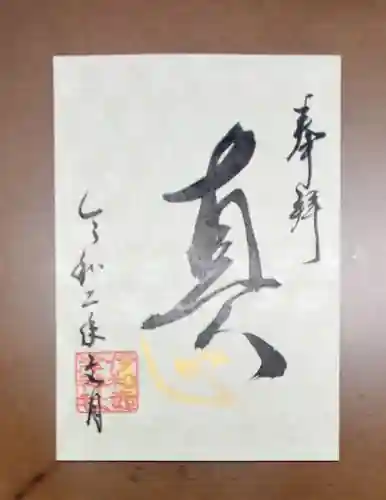 奉拝
真
令和二年文月